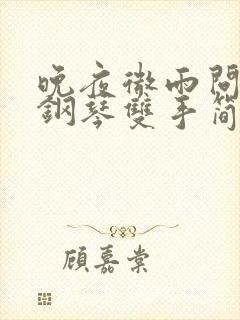 晚夜微雨問
鋼琴雙手簡
顧嘉棠